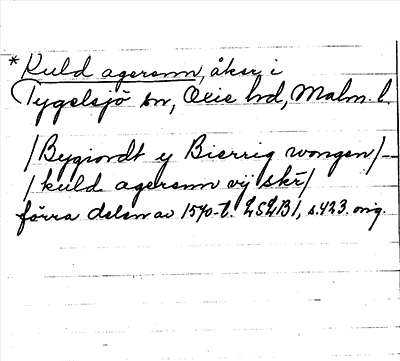 * Kuld agerenn, åker i
Tygelsjö sn, Oxie hd, Malm. l.
/Bygiordt ij Bierrig wongen/
/kuld agerenn vij skr/
förra delen av 1570-t. LSLB1, s. 423. orig.